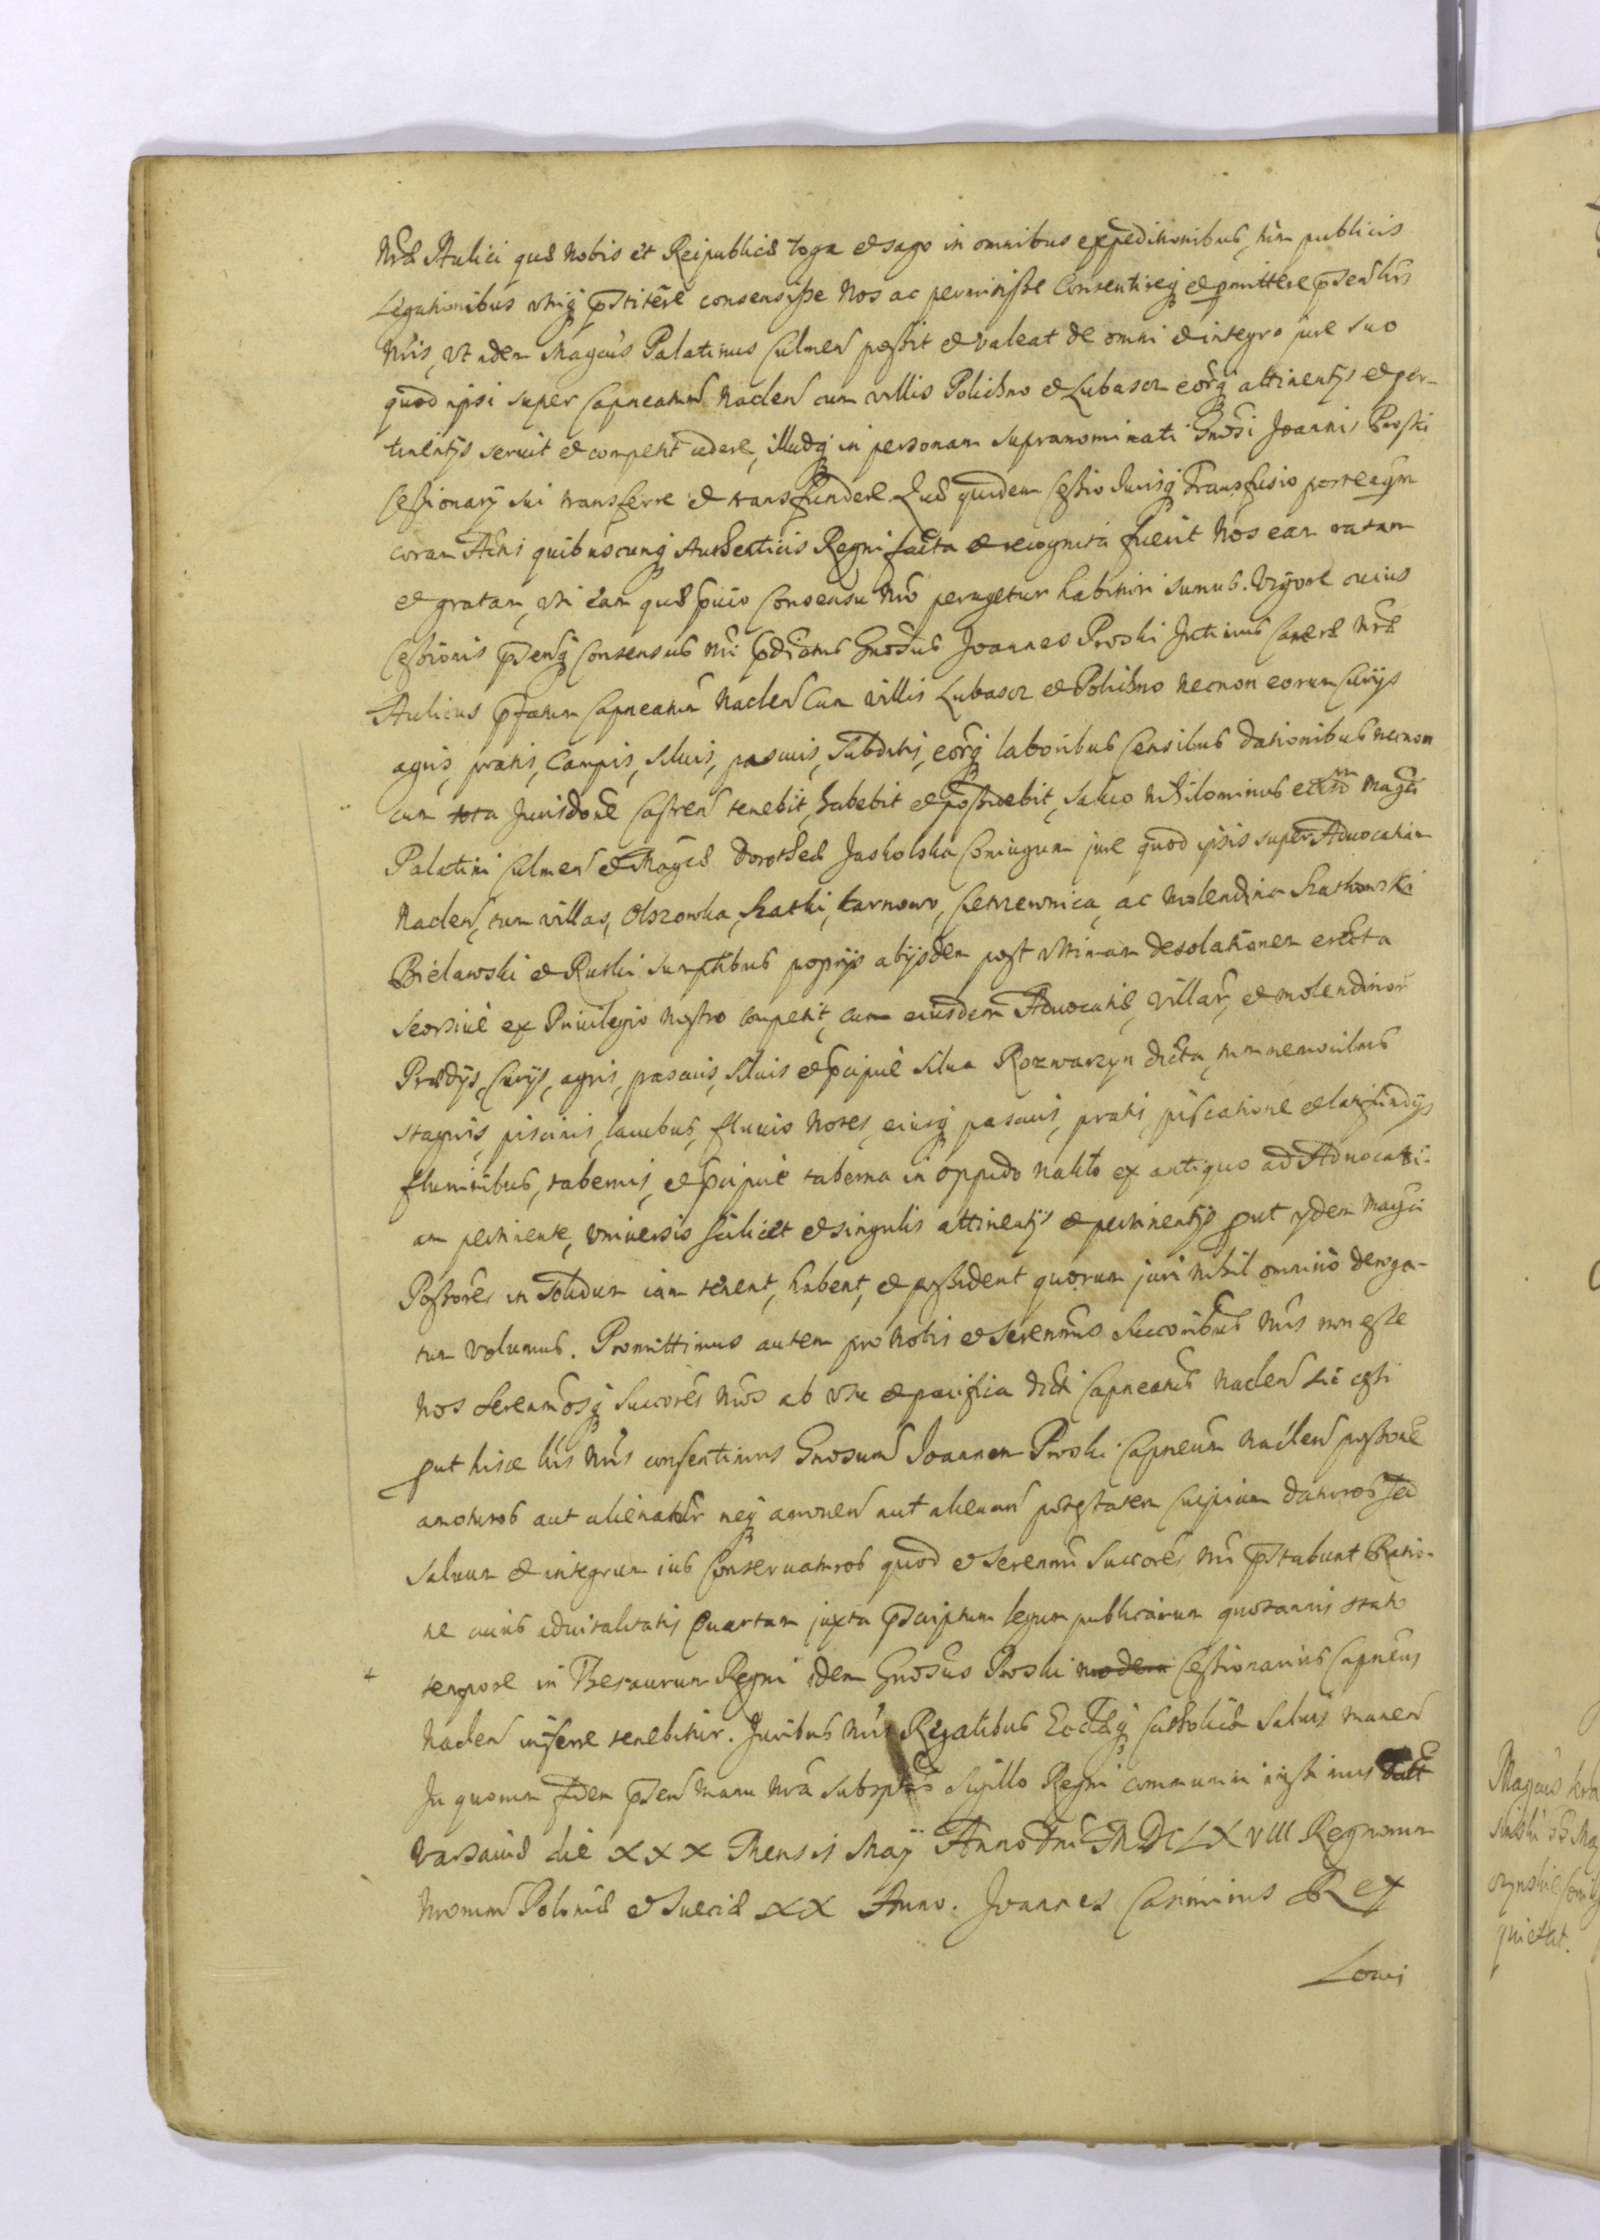 Nrae Aulici quae Nobis et Reipublicae toga et sago in omnibus expeditionibus, tum publicis
Legationibus utrinq praestitere consensisse Nos ac permisisse Consentireq et pmittere psentibus lris
Nris, Ut idem Magcus Palatinus Culmen possit et valeat de omni et integro jure suo
quod ipsi super Capneatum Naclen cum villis Polichno et Lubascz eorq attinentys et per-
tinentys servit et competit cedere, illudq in personam supranominati Gnosi Joannis Proski
Cessionary sui transferre et transfundere Quae quidem Cessio Iurisq Transfusio posteaqm
coram Actis quibuscunq Authenticis Regni facta et recognita fuerit Nos eam ratam
et gratam, uti eam quae pvio Consensu Nro peragetur habituri sumus. Vigore cuius
Cessionis psensq Consensus Nri pdictus Gnosus Joannes Proski Intimus Camerae Nrae
Aulicus pfatum Capneatum Naclen Cum villis Lubascz et Polichno Necnon eorum Curys
agris, pratis, Campis, silvis, pascuis, Subditis, eorq laboribus Censibus dationibus necnon
cum tota Jurisdone Castren tenebit, habebit et possidebit, salvo nihilominus Magci
Palatini Culmen et Magcae Dorotheae Jaskolska Coniugum jure quod ipsis super Advocatiam
Naclen, tum villas, Olszowka, Szatki, karnowo, Chrzewnica, ac Molendina Szatkowski
Bielawski et Rutki sumptibus proprys abysdem post ultimam desolationem erecta
Seorsive ex Privilegio Nostro competit, cum eiusdem Advocatiae, Villar, et molendinor
Praedys, Curys, agris, pascuis, silvis et pcipue silva Rozwarzyn dicta, tum nemoribus
stagnis, piscinis, lacubus, fluvio Notes, eiusq pascuis, pratis, piscatione et latifundys
fluminibus, tabernis, et pcipue taberna in oppido Nakło ex antiquo ad Advocati-
am pertinente, Universis scilicet et singulis attinentys et pertinentys put ydem Magci
Possores in Solidum iam tenent, habent, et possident quorum juri nihil omnino deroga-
tum volumus. Promittimus autem pro Nobis et Serenmis Succoribus Nris non esse
Nos Serenmosq Succores Nros ab usu et pacifica dicti Capneatus Naclen sic cessi
put hisce lris Nris consentimus Gnosum Joannem Proski Capneum Naclen possone
amoturos aut alienaturos neq amoven aut alienan potestatem cuipiam daturos sed
salvum et integrum ius Conservaturos quod et Serenmi Succores Nri pstabunt Ratio-
ne cuius advitalitatis Quartam juxta pscriptum legum publicarum quotannis stato
tempore in Thesaurum Regni idem Gnosus Proski modern Cessionarius Capneus
Naclen inferre tenebitur. Juribus Nris Regalibus Ecclaeq Catholicae Salvis manen
In quorum fidem psen manu Nra subsptas Sigillo Regni communiri iussimus Datt
Varsaviae die XXX Mensis May Anno Dni MDCLXVIII Regnorum
Nrorum Poloniae et Sueciae XX Anno. Joannes Casimirus Rex
Locus
Magcus
quietat.